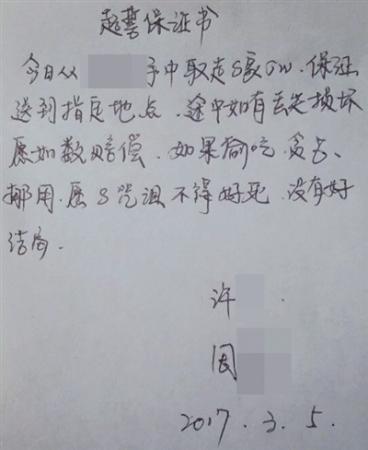 起誓保证书
今日从 手中取走S家 . 保证
送到指定地点. 途中如有丢失损坏
愿如数赔偿. 如果偷吃、贪占、
挪用. 愿S咒诅不得好死. 没有好
结局.
许 .
2017.3.5.